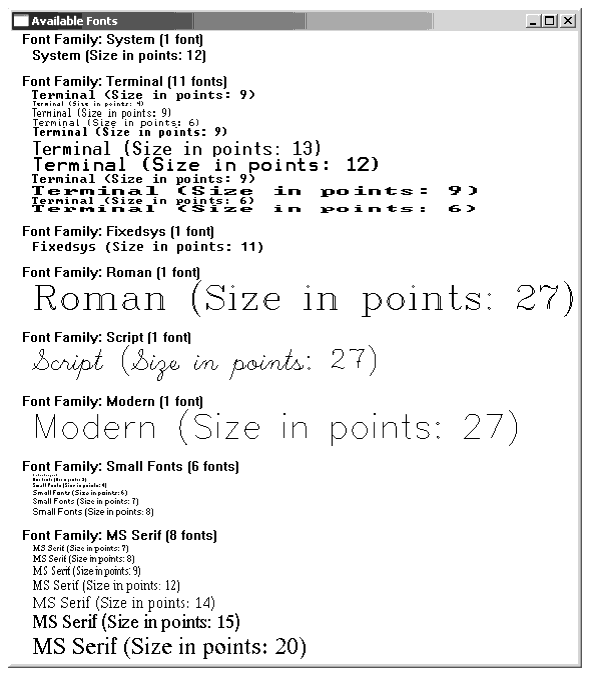 Available Fonts
Font Family: System (1 font)
System (Size in points: 12)
Font Family: Terminal (11 fonts)
Terminal (Size in points: 9)
Terminal (Size in points: 4)
Terminal (Size in points: 9)
Terminal (Size in points: 6)
Terminal (Size in points: 9)
Terminal (Size in points: 13)
Terminal (Size in points: 12)
Terminal (Size in points: 9)
Terminal (Size in points: 9)
Terminal (Size in points: 6)
Terminal (Size in points: 6)
Font Family: Fixedsys (1 font)
Fixedsys (Size in points: 11)
Font Family: Roman (1 font)
Roman (Size in points: 27)
Font Family: Script (1 font)
Script (Size in points: 27)
Font Family: Modern (1 font)
Modern (Size in points: 27)
Font Family: Small Fonts (6 fonts)
Small Fonts (Size in points: 4)
Small Fonts (Size in points: 6)
Small Fonts (Size in points: 7)
Small Fonts (Size in points: 8)
Font Family: MS Serif (8 fonts)
MS Serif (Size in points: 7)
MS Serif (Size in points: 8)
MS Serif (Size in points: 9)
MS Serif (Size in points: 12)
MS Serif (Size in points: 14)
MS Serif (Size in points: 15)
MS Serif (Size in points: 20)